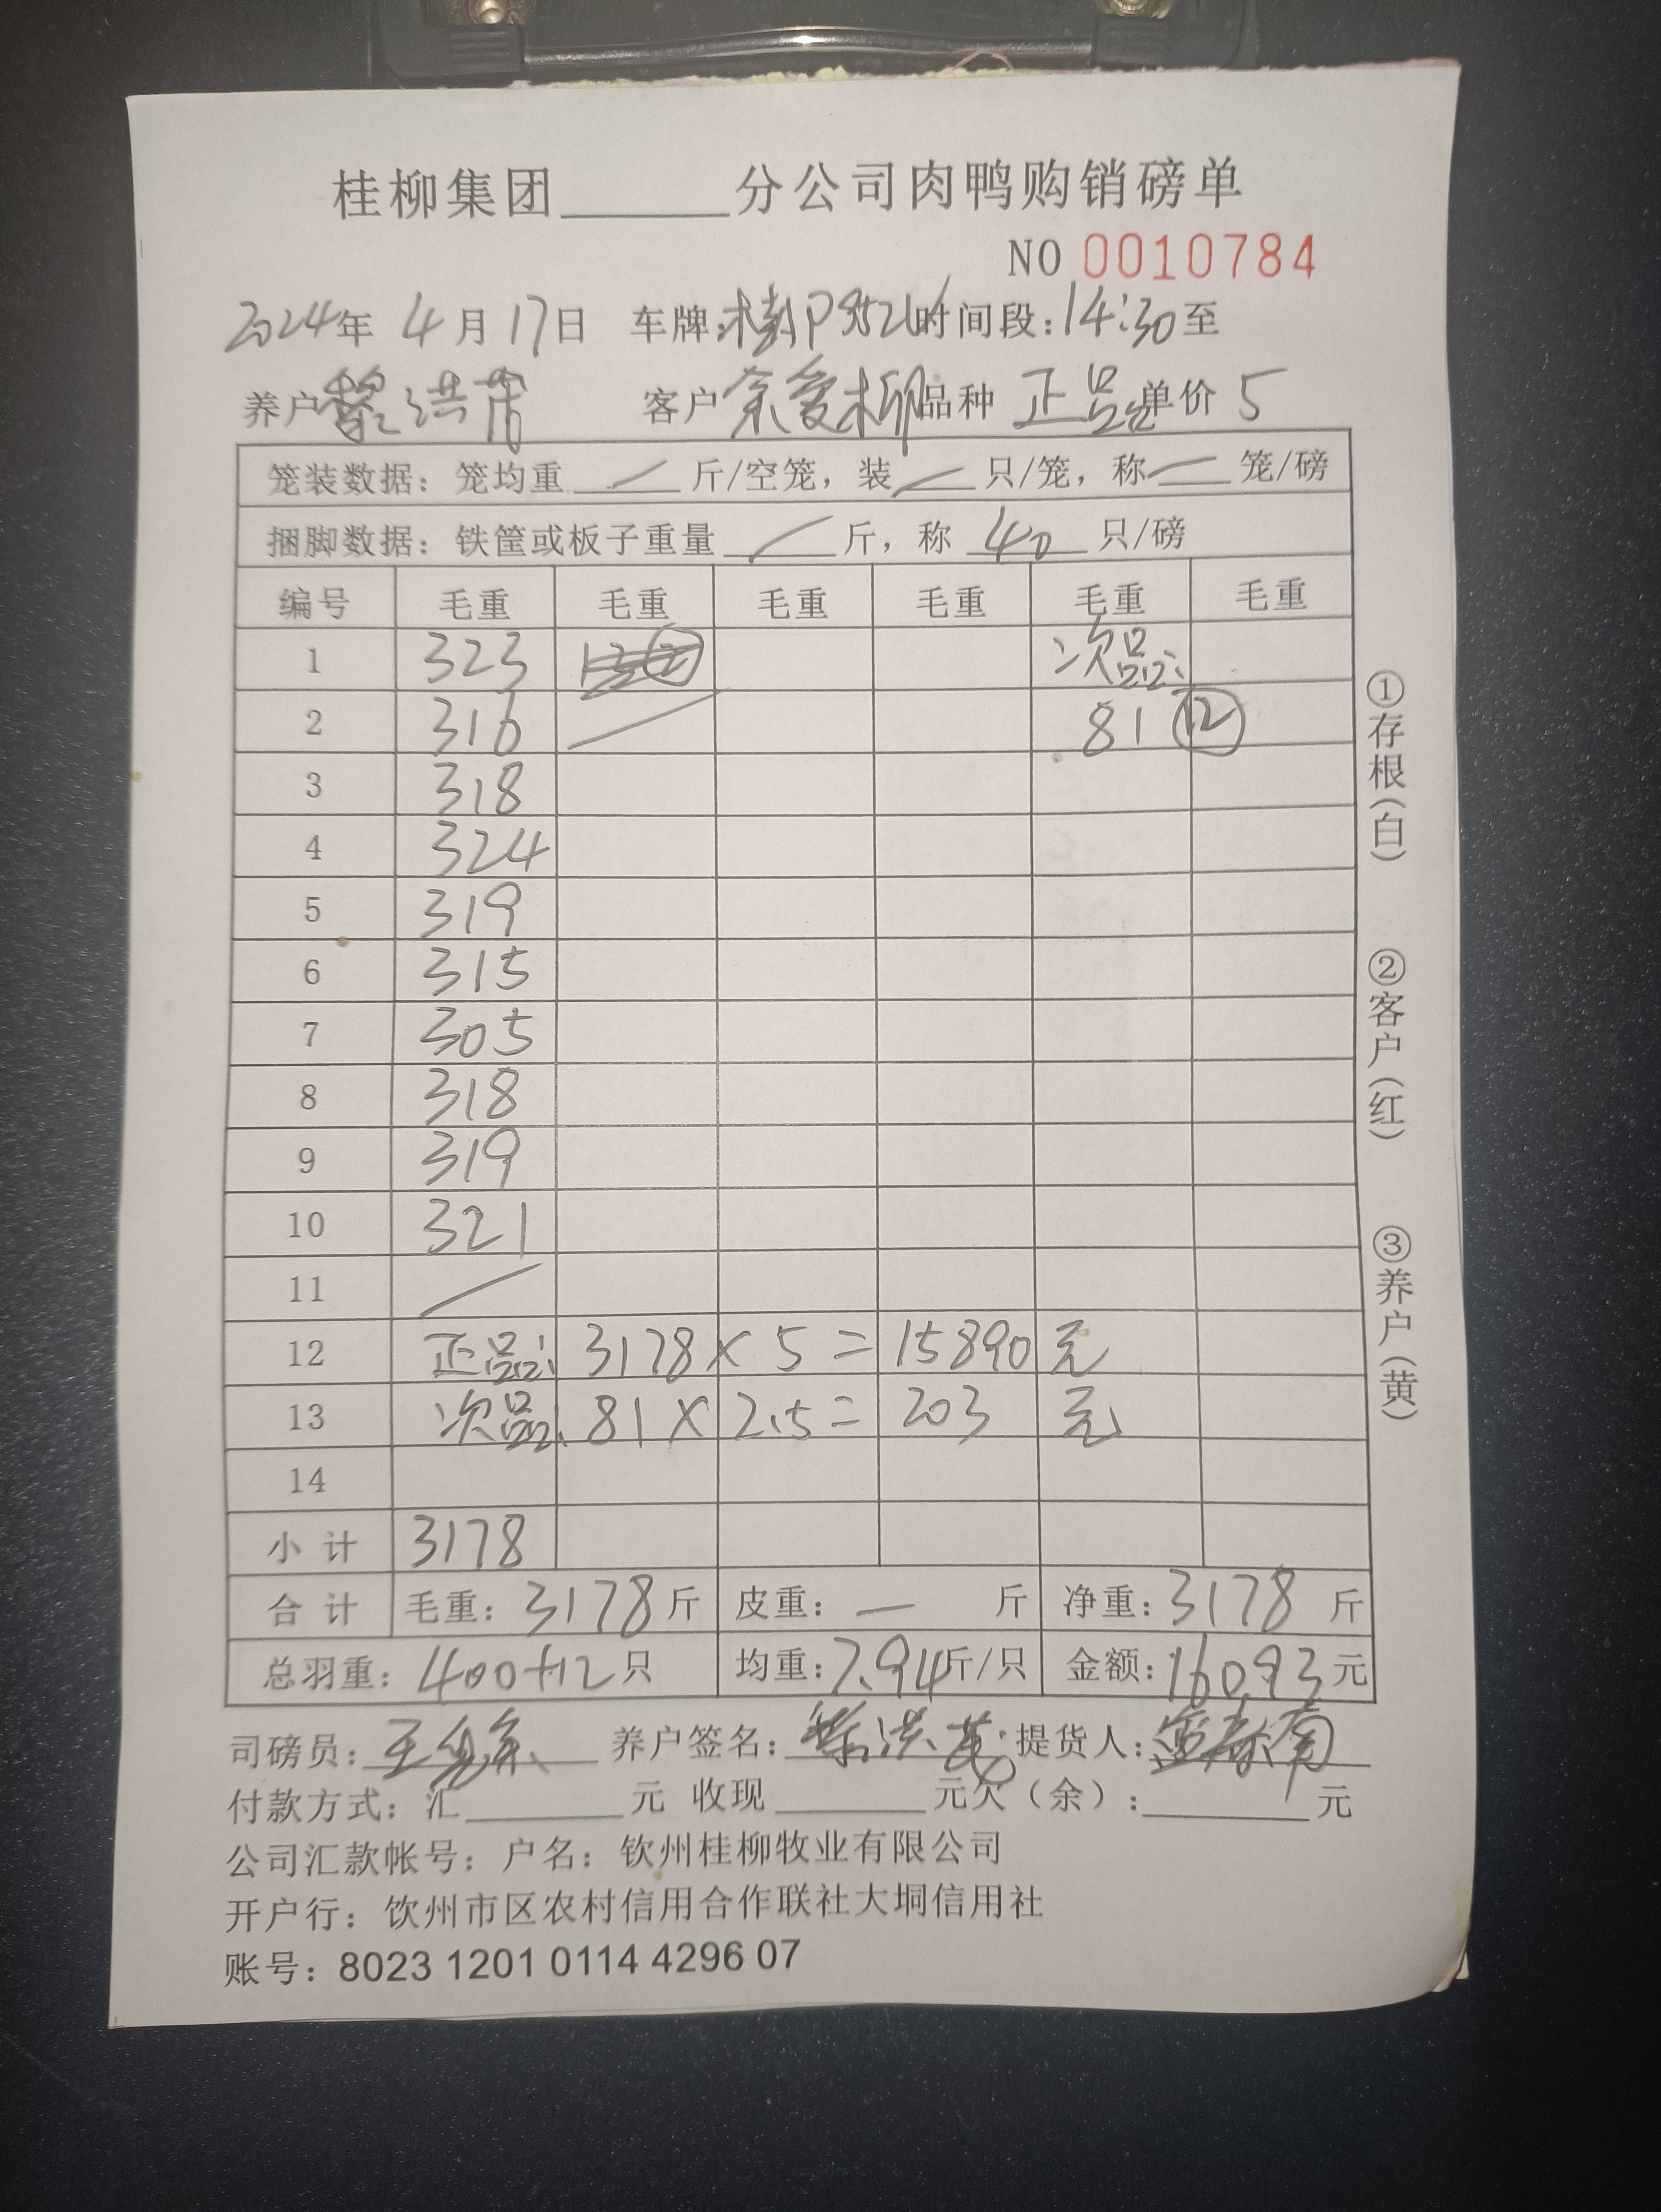 桂柳集团______分公司肉鸭购销磅单
NO 0010784
2024年 4月17日 车牌: 时间段:14:30至
养户黎洪 客户余爱柳品种 正品单价 5
笼装数据：笼均重 / 斤/空笼，装 / 只/笼，称 — 笼/磅
捆脚数据：铁筐或板子重量 / 斤，称 40 只/磅
编号 毛重 毛重 毛重 毛重 毛重 毛重
1 323 次品:
2 316 / 81 ⑫
3 318
4 324
5 319
6 315
7 305
8 318
9 319
10 321
11 /
12 正品: 3178 × 5 = 15890 元
13 次品: 81 × 2.5 = 203 元
14
小计 3178
合计 毛重：3178斤 皮重：— 斤 净重：3178 斤
总羽重：400+12只 均重：7.94斤/只 金额：16093元
司磅员： 养户签名： 提货人：
付款方式：汇______元 收现______元欠（余）：______元
公司汇款帐号：户名：钦州桂柳牧业有限公司
开户行：钦州市区农村信用合作联社大垌信用社
账号：8023 1201 0114 4296 07
①存根(白)
②客户(红)
③养户(黄)